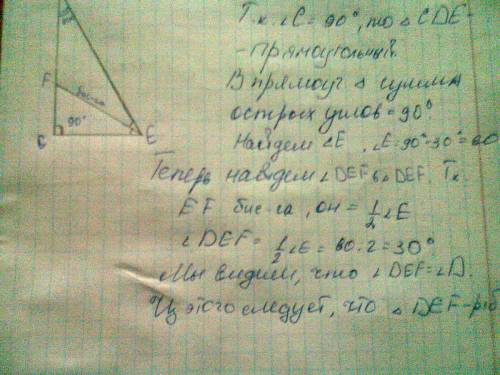 Т.к. ∠C = 90°, то △ CDE -
- прямоугольный.
В прямоуг △ сумма
острых углов = 90°
Найдем ∠E, ∠E = 90° - 30° = 60
Теперь найдем ∠DEF в △DEF. Тк
EF бис-са, он = 1/2 ∠E
∠DEF = 1/2 ∠E = 60 : 2 = 30°
Мы видим, что ∠DEF = ∠D.
Из этого следует, что △ DEF - р/б
F
C
90°
E